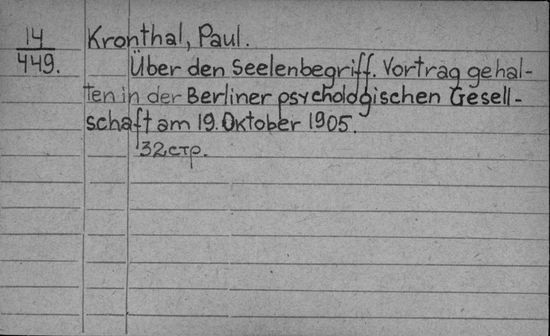 14
449.
Kronthal, Paul.
Über den Seelenbegriff. Vortrag gehal-
ten in der Berliner psychologischen Gesell-
schaft am 19. Oktober 1905.
32 стр.